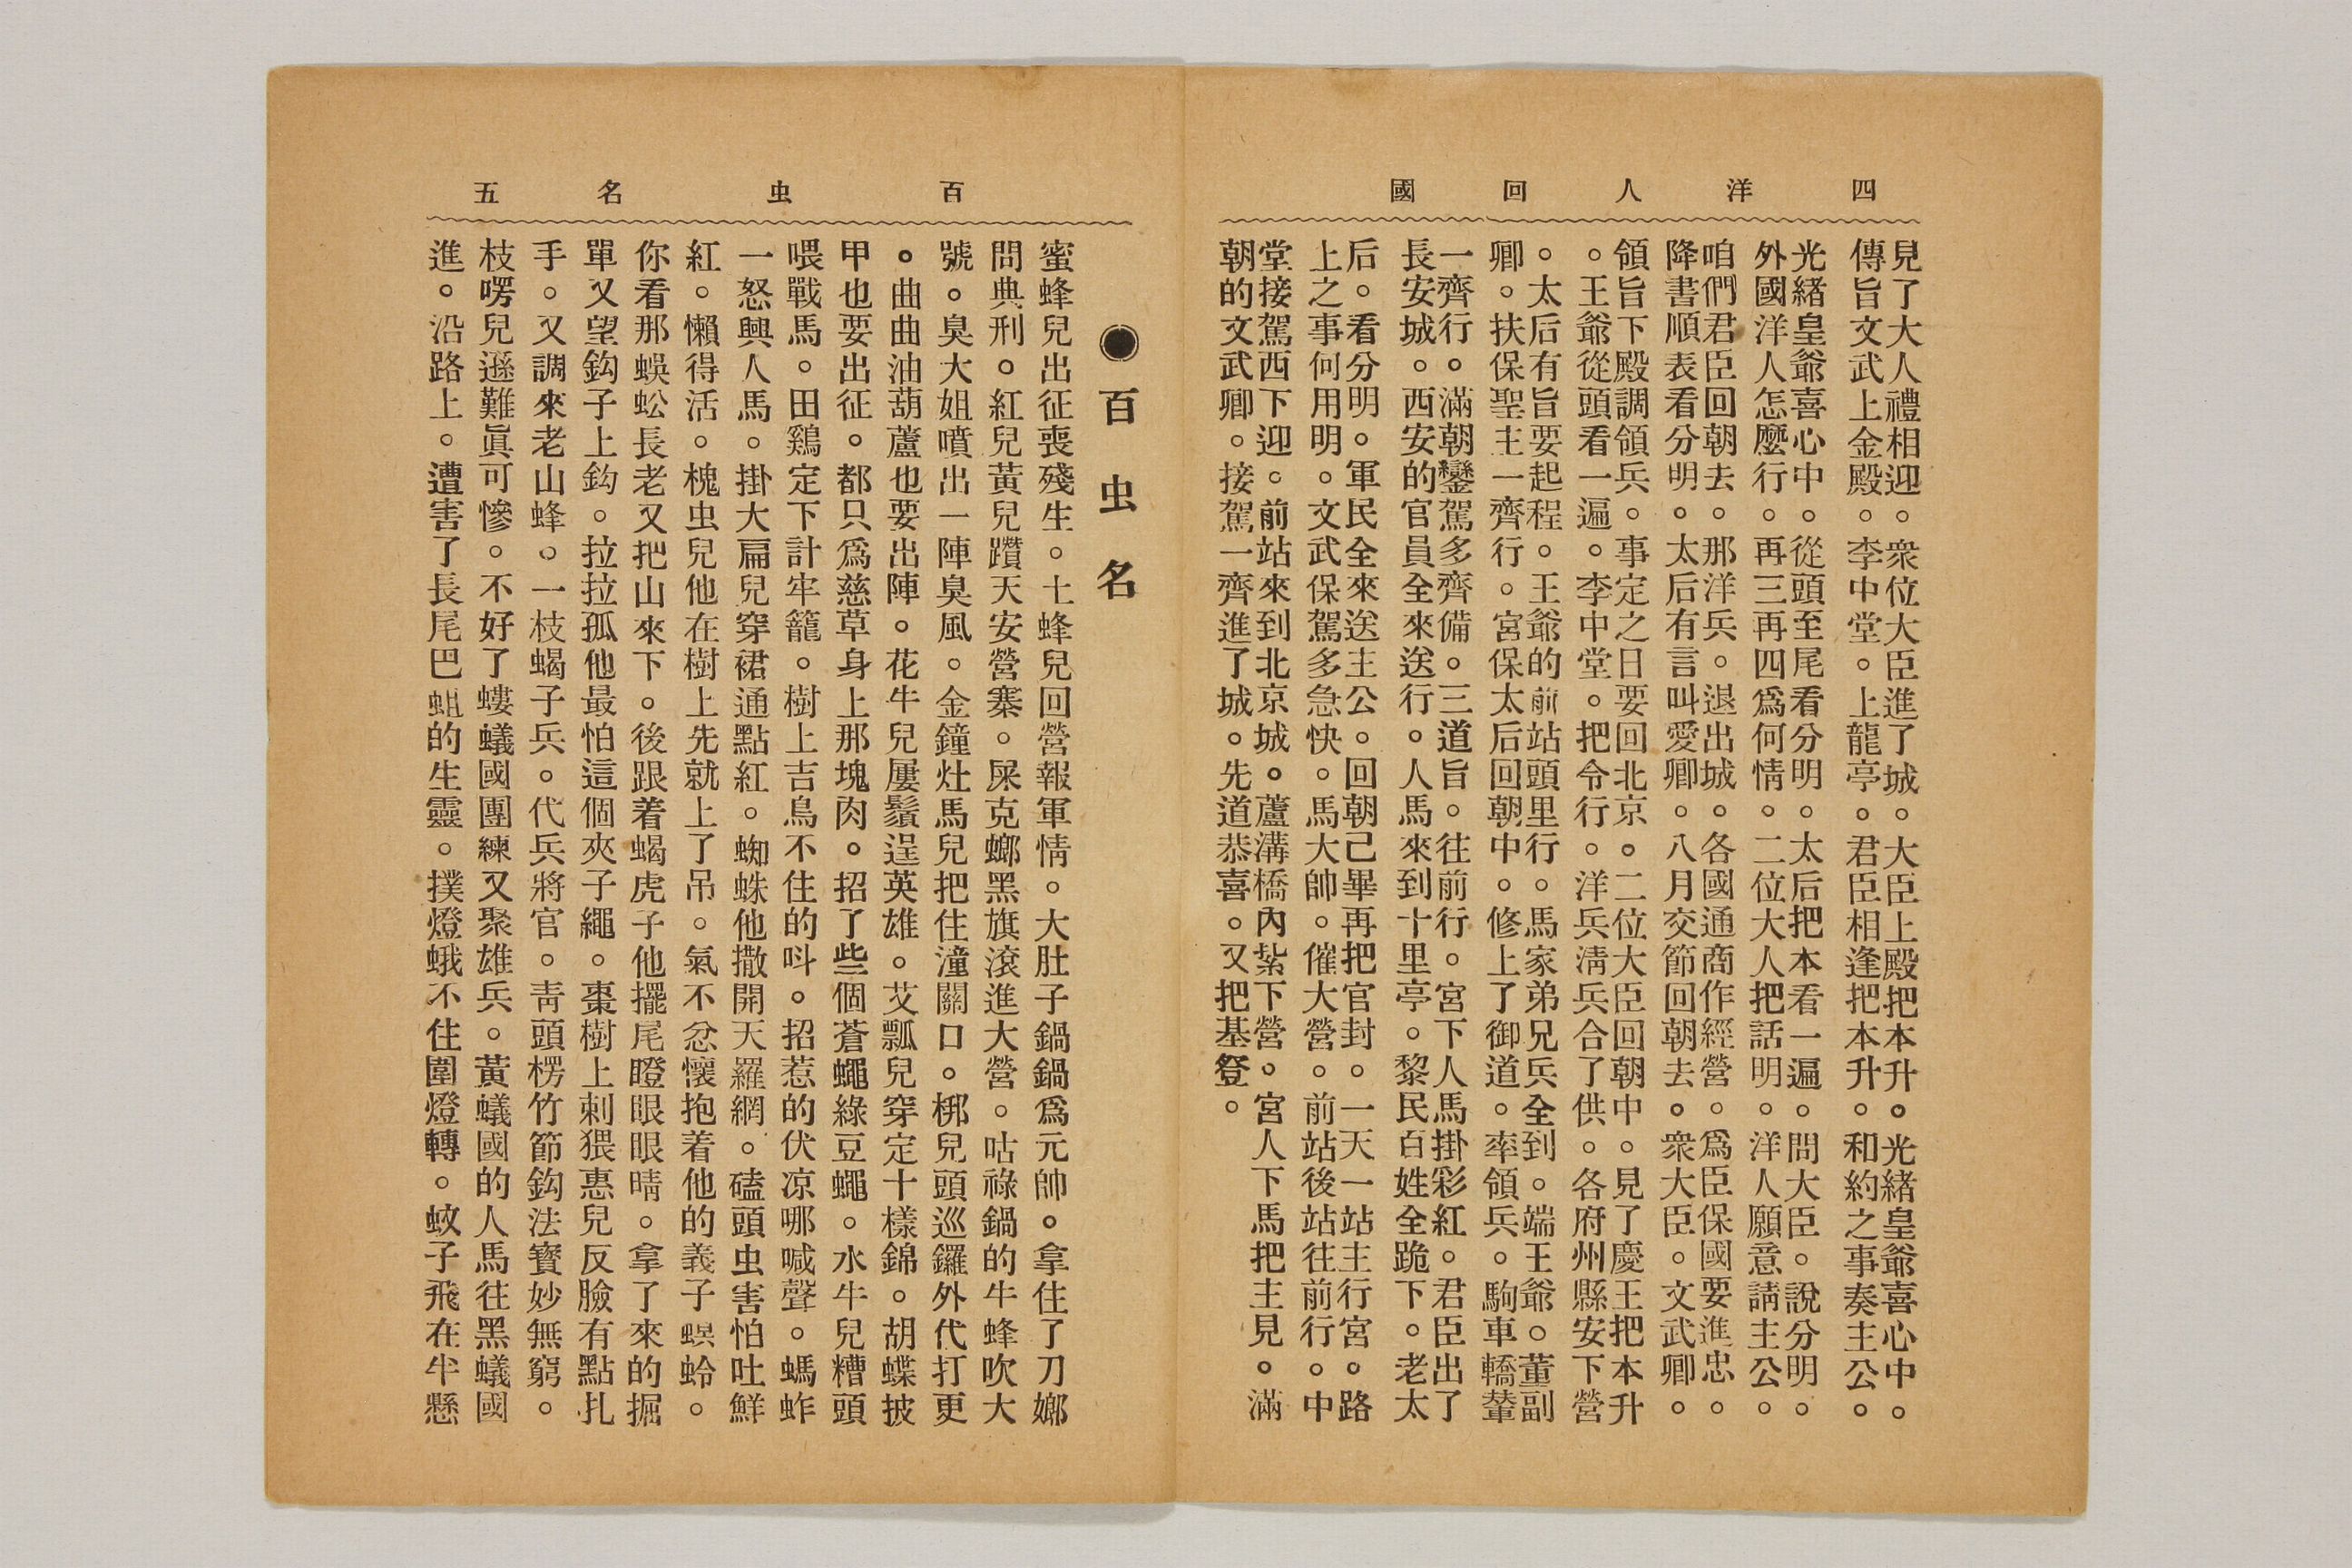 四洋人回國
見了大人禮相迎。衆位大臣進了城。大臣上殿把本升。光緒皇爺喜心中。
傳旨文武上金殿。李中堂。上龍亭。君臣相逢把本升。和約之事奏主公。
光緒皇爺喜心中。從頭至尾看分明。太后把本看一遍。問大臣。說分明。
外國洋人怎麼行。再三再四爲何情。二位大人把話明。洋人願意請主公。
咱們君臣回朝去。那洋兵。退出城。各國通商作經營。爲臣保國要進忠。
降書順表看分明。太后有言叫愛卿。八月交節回朝去。衆大臣。文武卿。
領旨下殿調領兵。事定之日要回北京。二位大臣回朝中。見了慶王把本升
。王爺從頭看一遍。李中堂。把令行。洋兵淸兵合了供。各府州縣安下營
。太后有旨要起程。王爺的前站頭里行。馬家弟兄兵全到。端王爺。董副
卿。扶保聖主一齊行。宮保太后回朝中。修上了御道。率領兵。駒車轎輦
一齊行。滿朝鑾駕多齊備。三道旨。往前行。宮下人馬掛彩紅。君臣出了
長安城。西安的官員全來送行。人馬來到十里亭。黎民百姓全跪下。老太
后。看分明。軍民全來送主公。回朝己畢再把官封。一天一站主行宮。路
上之事何用明。文武保駕多急快。馬大帥。催大營。前站後站往前行。中
堂接駕西下迎。前站來到北京城。蘆溝橋內紮下營。宮人下馬把主見。滿
朝的文武卿。接駕一齊進了城。先道恭喜。又把基登。
百虫名五
●百虫名
蜜蜂兒出征喪殘生。土蜂兒回營報軍情。大肚子鍋鍋爲元帥。拿住了刀螂
問典刑。紅兒黃兒躦天安營寨。屎克螂黑旗滾進大營。咕祿鍋的牛蜂吹大
號。臭大姐噴出一陣臭風。金鐘灶馬兒把住潼關口。梆兒頭巡鑼外代打更
。曲曲油葫蘆也要出陣。花牛兒屢鬚逞英雄。艾瓢兒穿定十樣錦。胡蝶披
甲也要出征。都只爲慈草身上那塊肉。招了些個蒼蠅綠豆蠅。水牛兒糟頭
喂戰馬。田鷄定下計牢籠。樹上吉鳥不住的呌。招惹的伏凉哪喊聲。螞蚱
一怒興人馬。掛大扁兒穿裙通點紅。蜘蛛他撒開天羅網。磕頭虫害怕吐鮮
紅。懶得活。槐虫兒他在樹上先就上了吊。氣不忿懷抱着他的義子螟蛉。
你看那蜈蚣長老又把山來下。後跟着蝎虎子他擺尾瞪眼眼晴。拿了來的掘
單又望鈎子上鈎。拉拉孤他最怕這個夾子繩。棗樹上刺猥惠兒反臉有點扎
手。又調來老山蜂。一枝蝎子兵。代兵將官。靑頭楞竹節鈎法寳妙無窮。
枝㗁兒遜難眞可慘。不好了螻蟻國團練又聚雄兵。黃蟻國的人馬往黑蟻國
進。沿路上。遭害了長尾巴蛆的生靈。撲燈蛾不住圍燈轉。蚊子飛在半懸